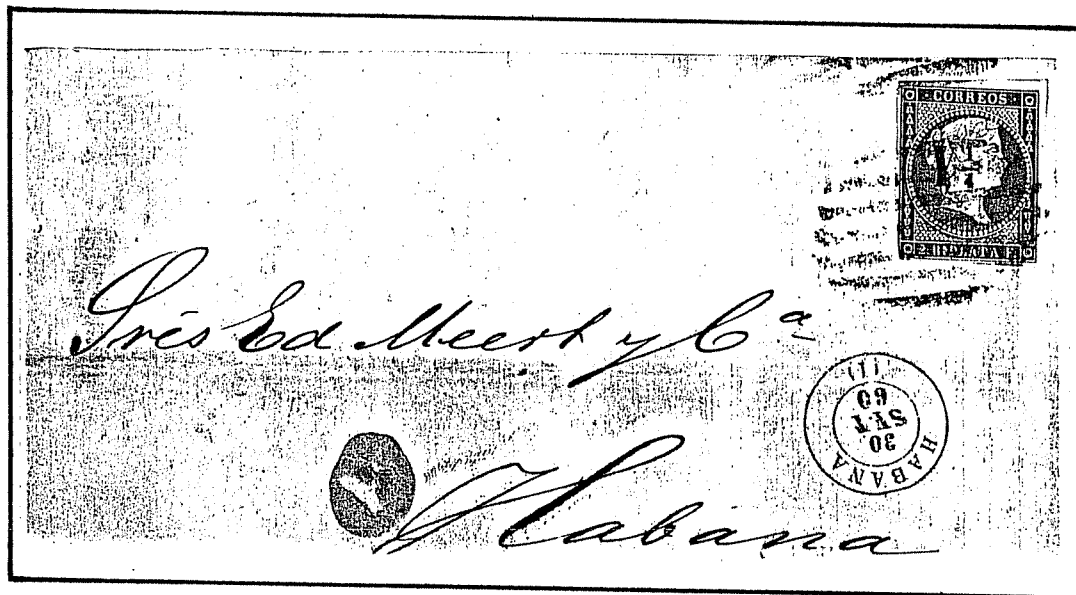 CORREOS
Y 1/4
2 Rl. PLATA F.
Sres Ed. Meert y Cª
HABANA
30
SET
60
(1)
Habana